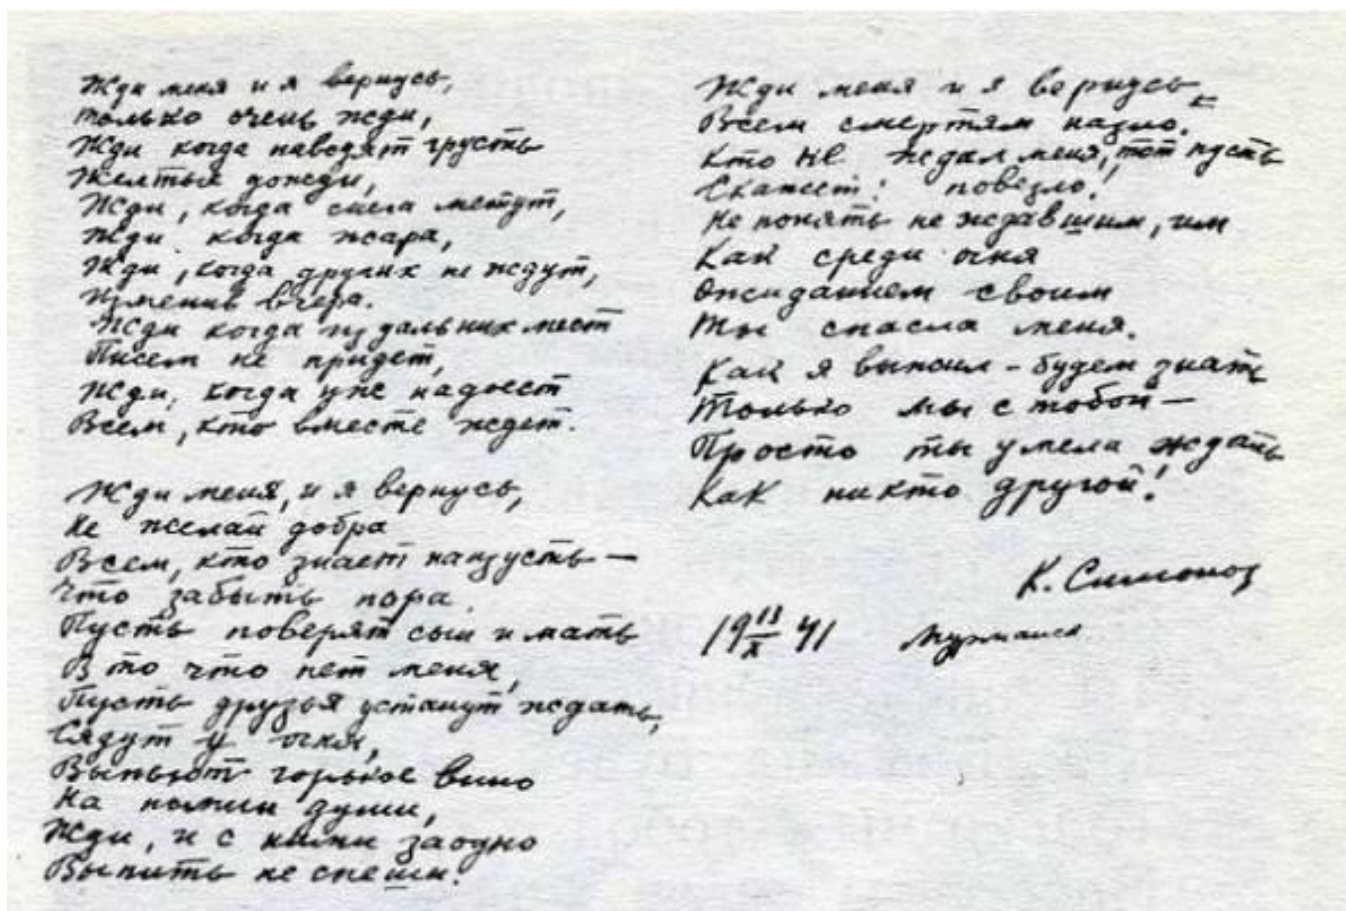 Жди меня и я вернусь,
только очень жди,
Жди когда наводят грусть
Желтые дожди,
Жди, когда снега метут,
Жди когда жара,
Жди, когда других не ждут,
Изменив вчера.
Жди когда из дальних мест
Писем не придет,
Жди, когда уже надоест
Всем, кто вместе ждет.
Жди меня, и я вернусь,
Не желай добра
Всем, кто знает наизусть —
Что забыть пора.
Пусть поверят сын и мать
В то что нет меня,
Пусть друзья устанут ждать,
Сядут у огня,
Выпьют горькое вино
На помин души,
Жди, и с ними заодно
Выпить не спеши.
Жди меня и я вернусь
Всем смертям назло.
Кто не ждал меня, тот пусть
Скажет: повезло!
Не понять не ждавшим, им
Как среди огня
Ожиданием своим
Ты спасла меня.
Как я выжил – будем знать
Только мы с тобой —
Просто ты умела ждать
Как никто другой!
К. Симонов
19 13/X 41 Мурманск